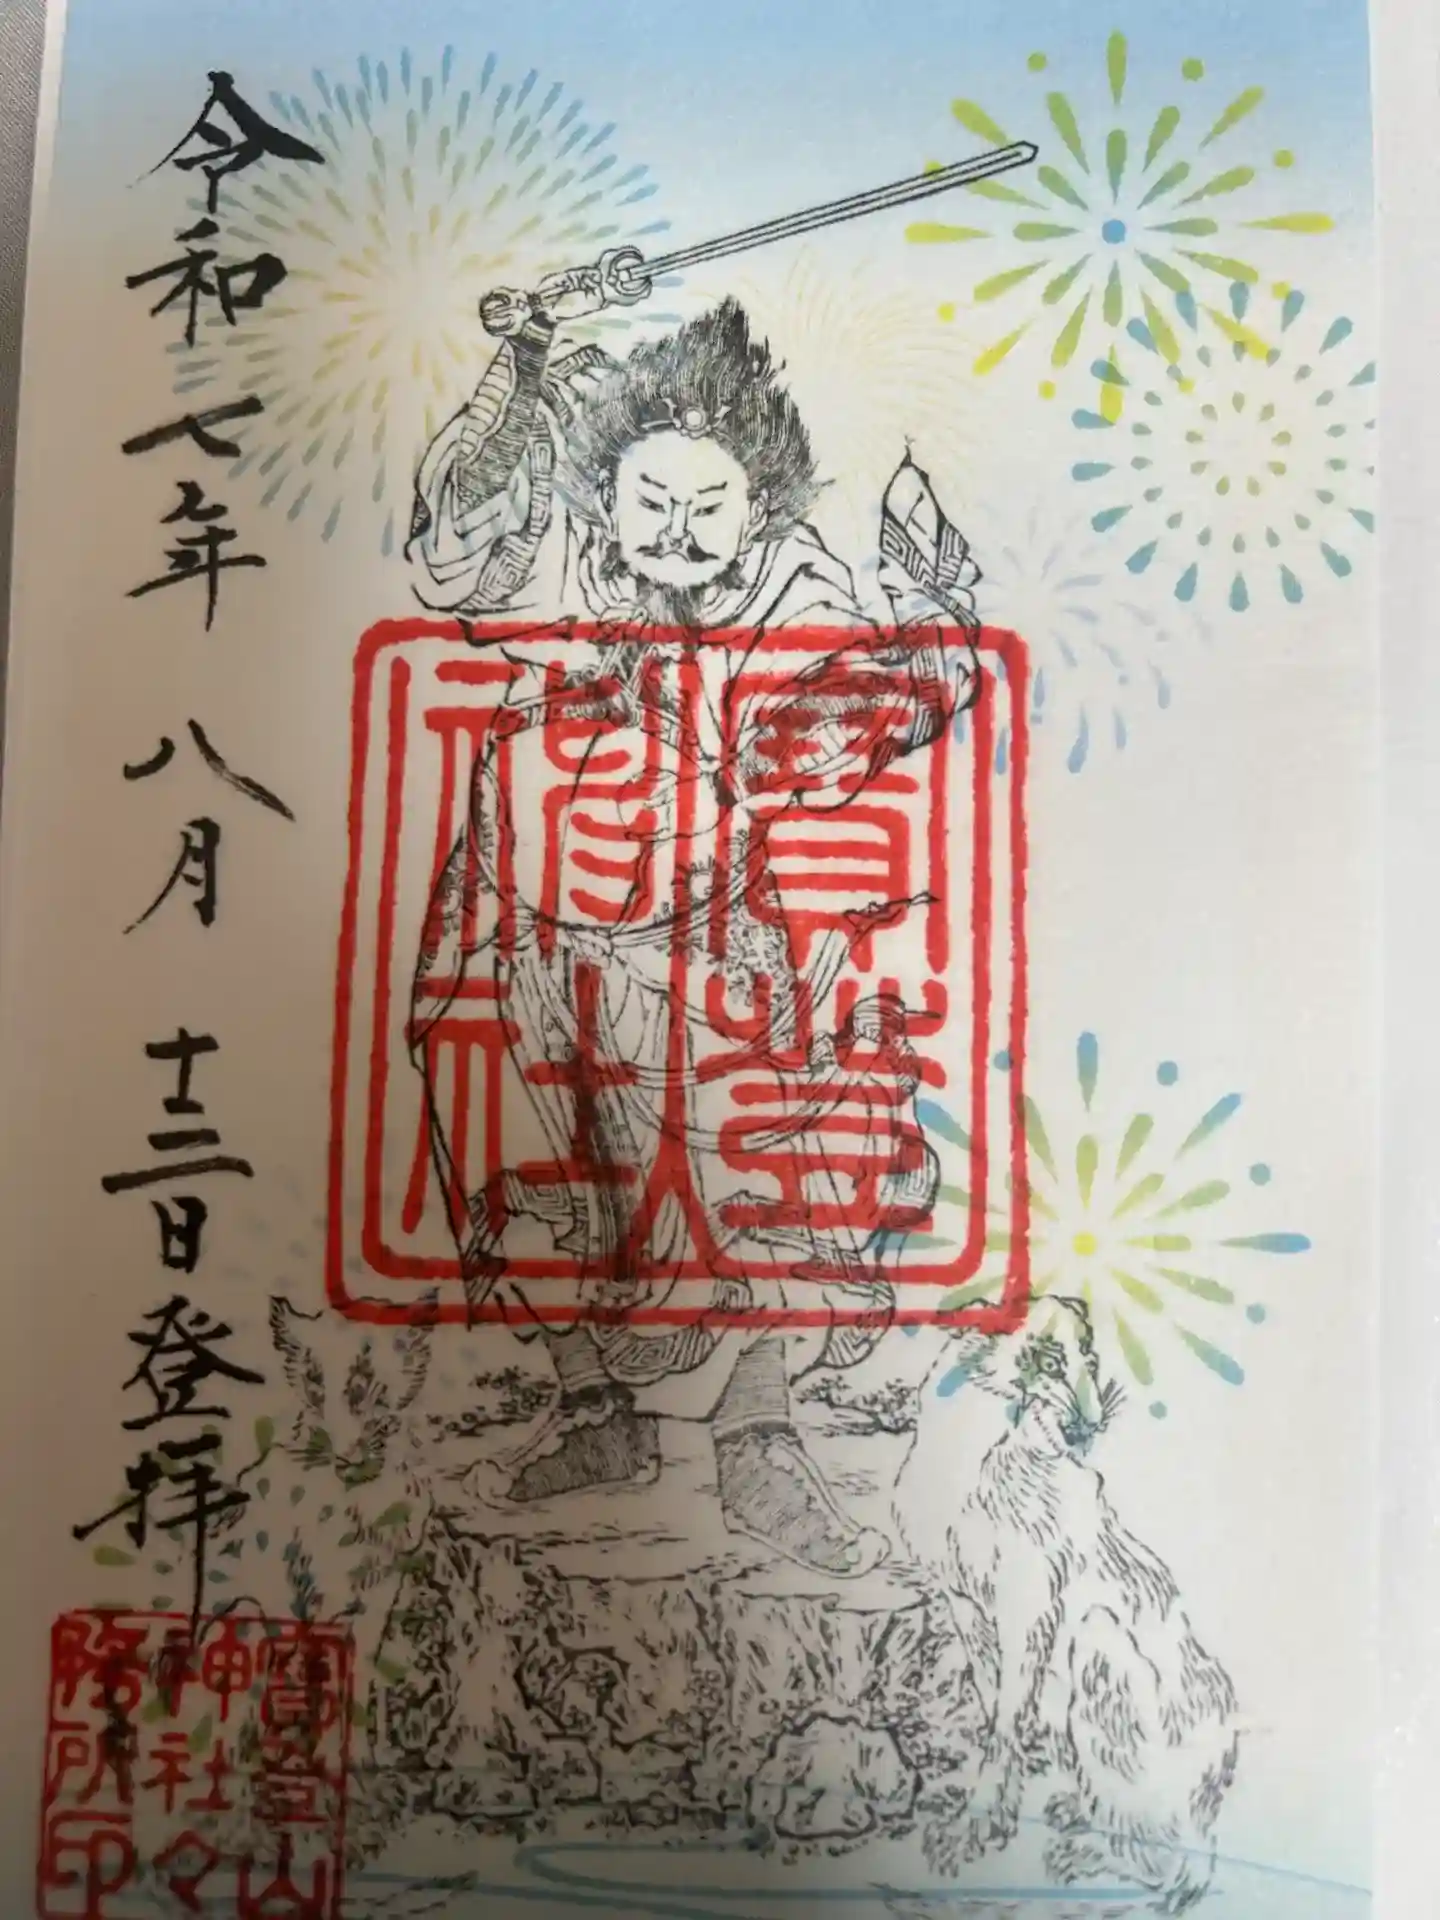 寶登
神社
令和七年 八月 十三日登拝
寶登山
神社々
務所印